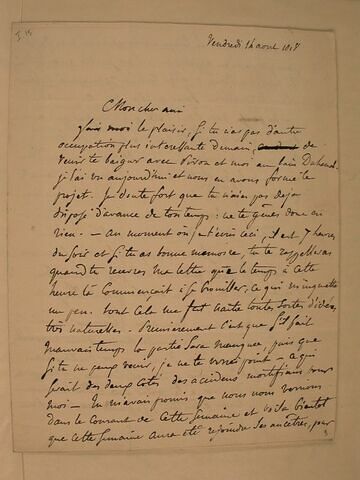 Vendredi 14 aout 1818
Mon cher ami
fais moi le plaisir, si tu n'as pas d'autre
occupation plus interessante demain, de
venir te baigner avec Piron et moi au bain
je l'ai vu aujourd'hui et nous en avons formé le
projet. Je doute fort que tu n'aies pas deja
disposé d'avance de ton temps: ne te gênes donc en
rien — Au moment où je t'écris ceci, il est 7 heures
du soir et si tu as bonne memoire, tu te rappelleras
quand tu recevras ma lettre que le temps à cette
heure là commençait à se brouiller, ce qui m'inquiette
un peu. tout cela me fait naitre toutes sortes d'idées
très naturelles. Premierement c'est que s'il fait
mauvais temps la partie sera manquée, puis que
si tu ne peux venir, je ne te verrai point — ce qui
serait des deux cotés des accidens mortifians pour
moi — Tu m'avais promis que nous nous verrions
dans le courant de cette semaine et voilà bientot
que cette semaine aura été rejoindre ses ancêtres, pour